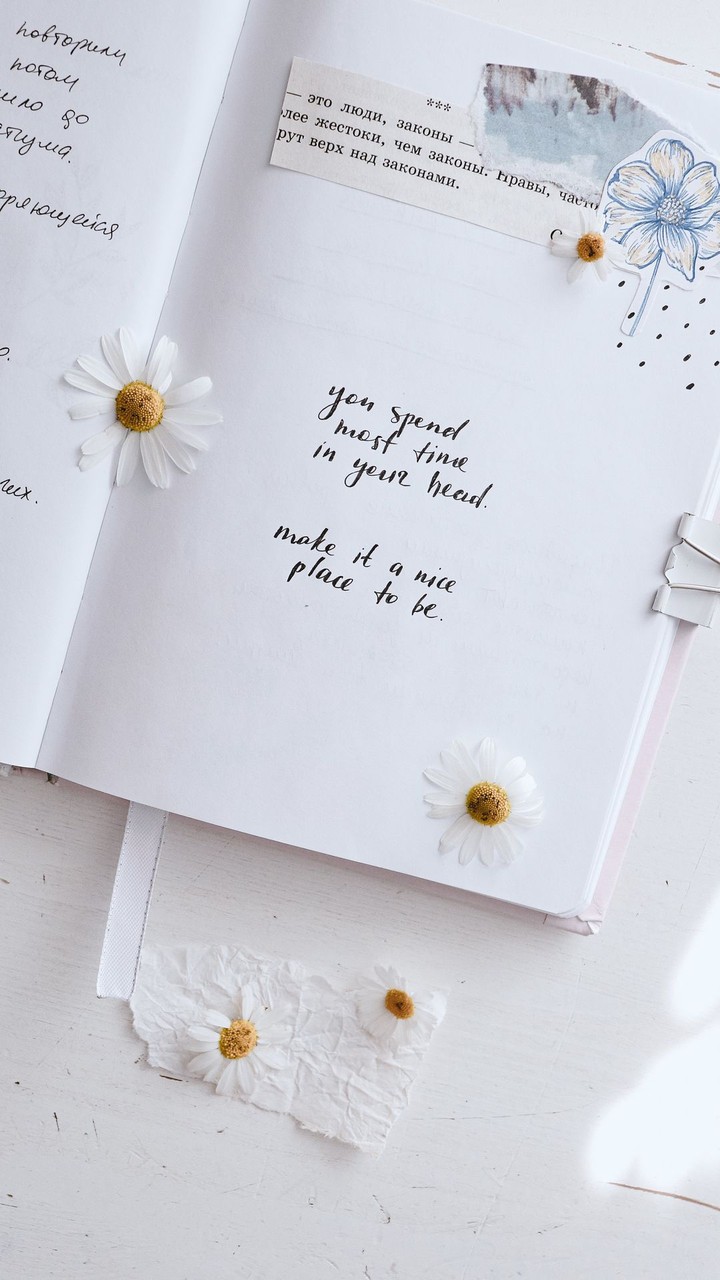 повторили
потом
до
***
— это люди, законы —
жестоки, чем законы. Нравы, часто
верх над законами.
С
you spend
most time
in your head.
make it a nice
place to be.